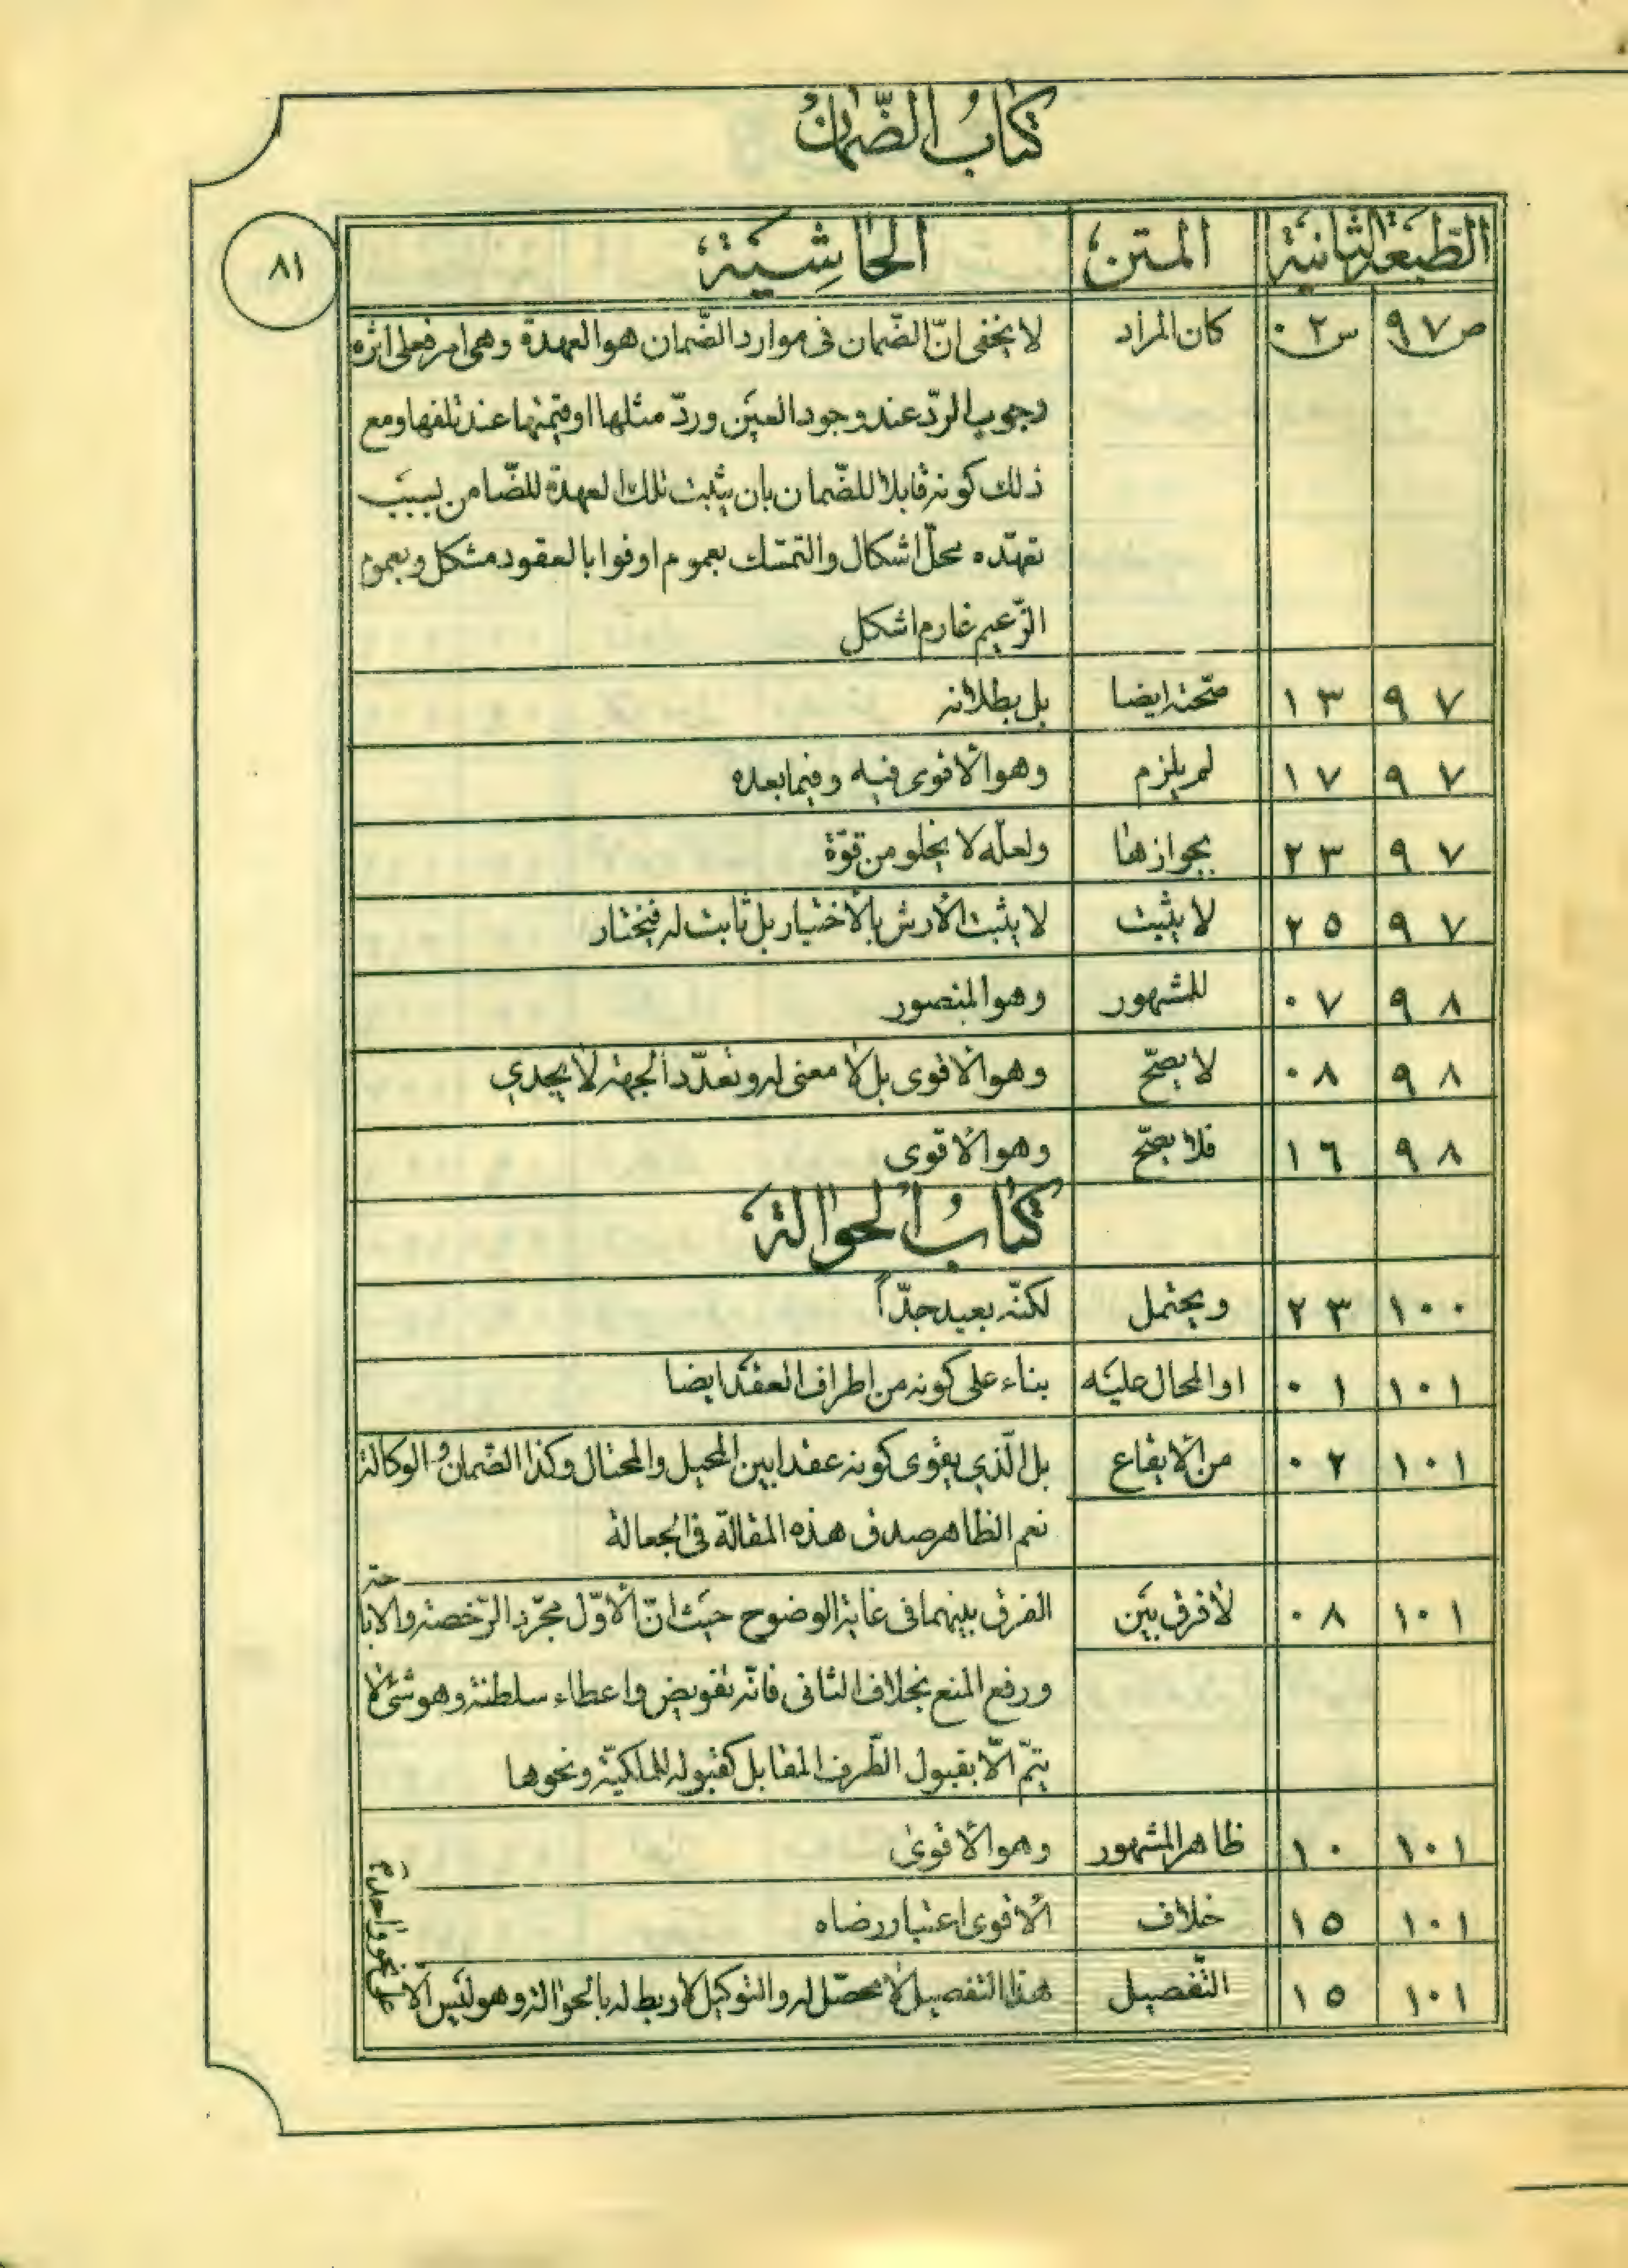 كتابُ الضّمان
٨١
الطّبعة الثانية المتن الحاشِية
ص ٩٧ س ٠٢ كان المراد لا يخفى انّ الضّمان فى موارد الضّمان هو العهدة وهى امر فعلى اثره
وجوب الردّ عند وجود العين وردّ مثلها او قيمتها عند تلفها ومع
ذلك كونه قابلا للضّمان بان يثبت تلك العهدة للضّامن بسبب
تعهّده محلّ اشكال والتمسّك بعموم اوفوا بالعقود مشكل وبعموم
الزّعيم غارم اشكل
٩٧ ١٣ صحّته ايضا بل بطلانه
٩٧ ١٧ لم يلزم وهو الأقوى فيه وفيما بعده
٩٧ ٢٣ بجوازها ولعلّه لا يخلو من قوّة
٩٧ ٢٥ لا يثبت لا يثبت الأرش بالأختيار بل ثابت له فيختار
٩٨ ٠٧ للمشهور وهو المنصور
٩٨ ٠٨ لا يصحّ وهو الأقوى بل لا معنى له وتعدّد الجهة لا يجدي
٩٨ ١٦ فلا يصحّ وهو الأقوى
كتابُ الحوالة
١٠٠ ٢٣ ويحتمل لكنّه بعيد جدّاً
١٠١ ٠١ او المحال عليه بناء على كونه من اطراف العقد ايضا
١٠١ ٠٢ من الأيقاع بل الّذي يقوى كونه عقدا بين المحيل والمحتال وكذا الضّمان والوكالة
نعم الظاهر صدق هذه المقالة فى الجعالة
١٠١ ٠٨ لا فرق بين الفرق بينهما فى غاية الوضوح حيث انّ الأوّل مجرّد الرّخصة والابا حة
ورفع المنع بخلاف الثانى فانّه تفويض واعطاء سلطنة وهو شئ لا
يتمّ الّا بقبول الطّرف المقابل كقبوله للملكيّة ونحوها
١٠١ ١٠ ظاهر المشهور وهو الأقوى
١٠١ ١٥ خلاف الأقوى اعتبار رضاه
١٠١ ١٥ التّفصيل هذا التفصيل لا محصّل له والتوكيل لا ربط له بالحوالة وهو ليس الّا
على نحو واحد